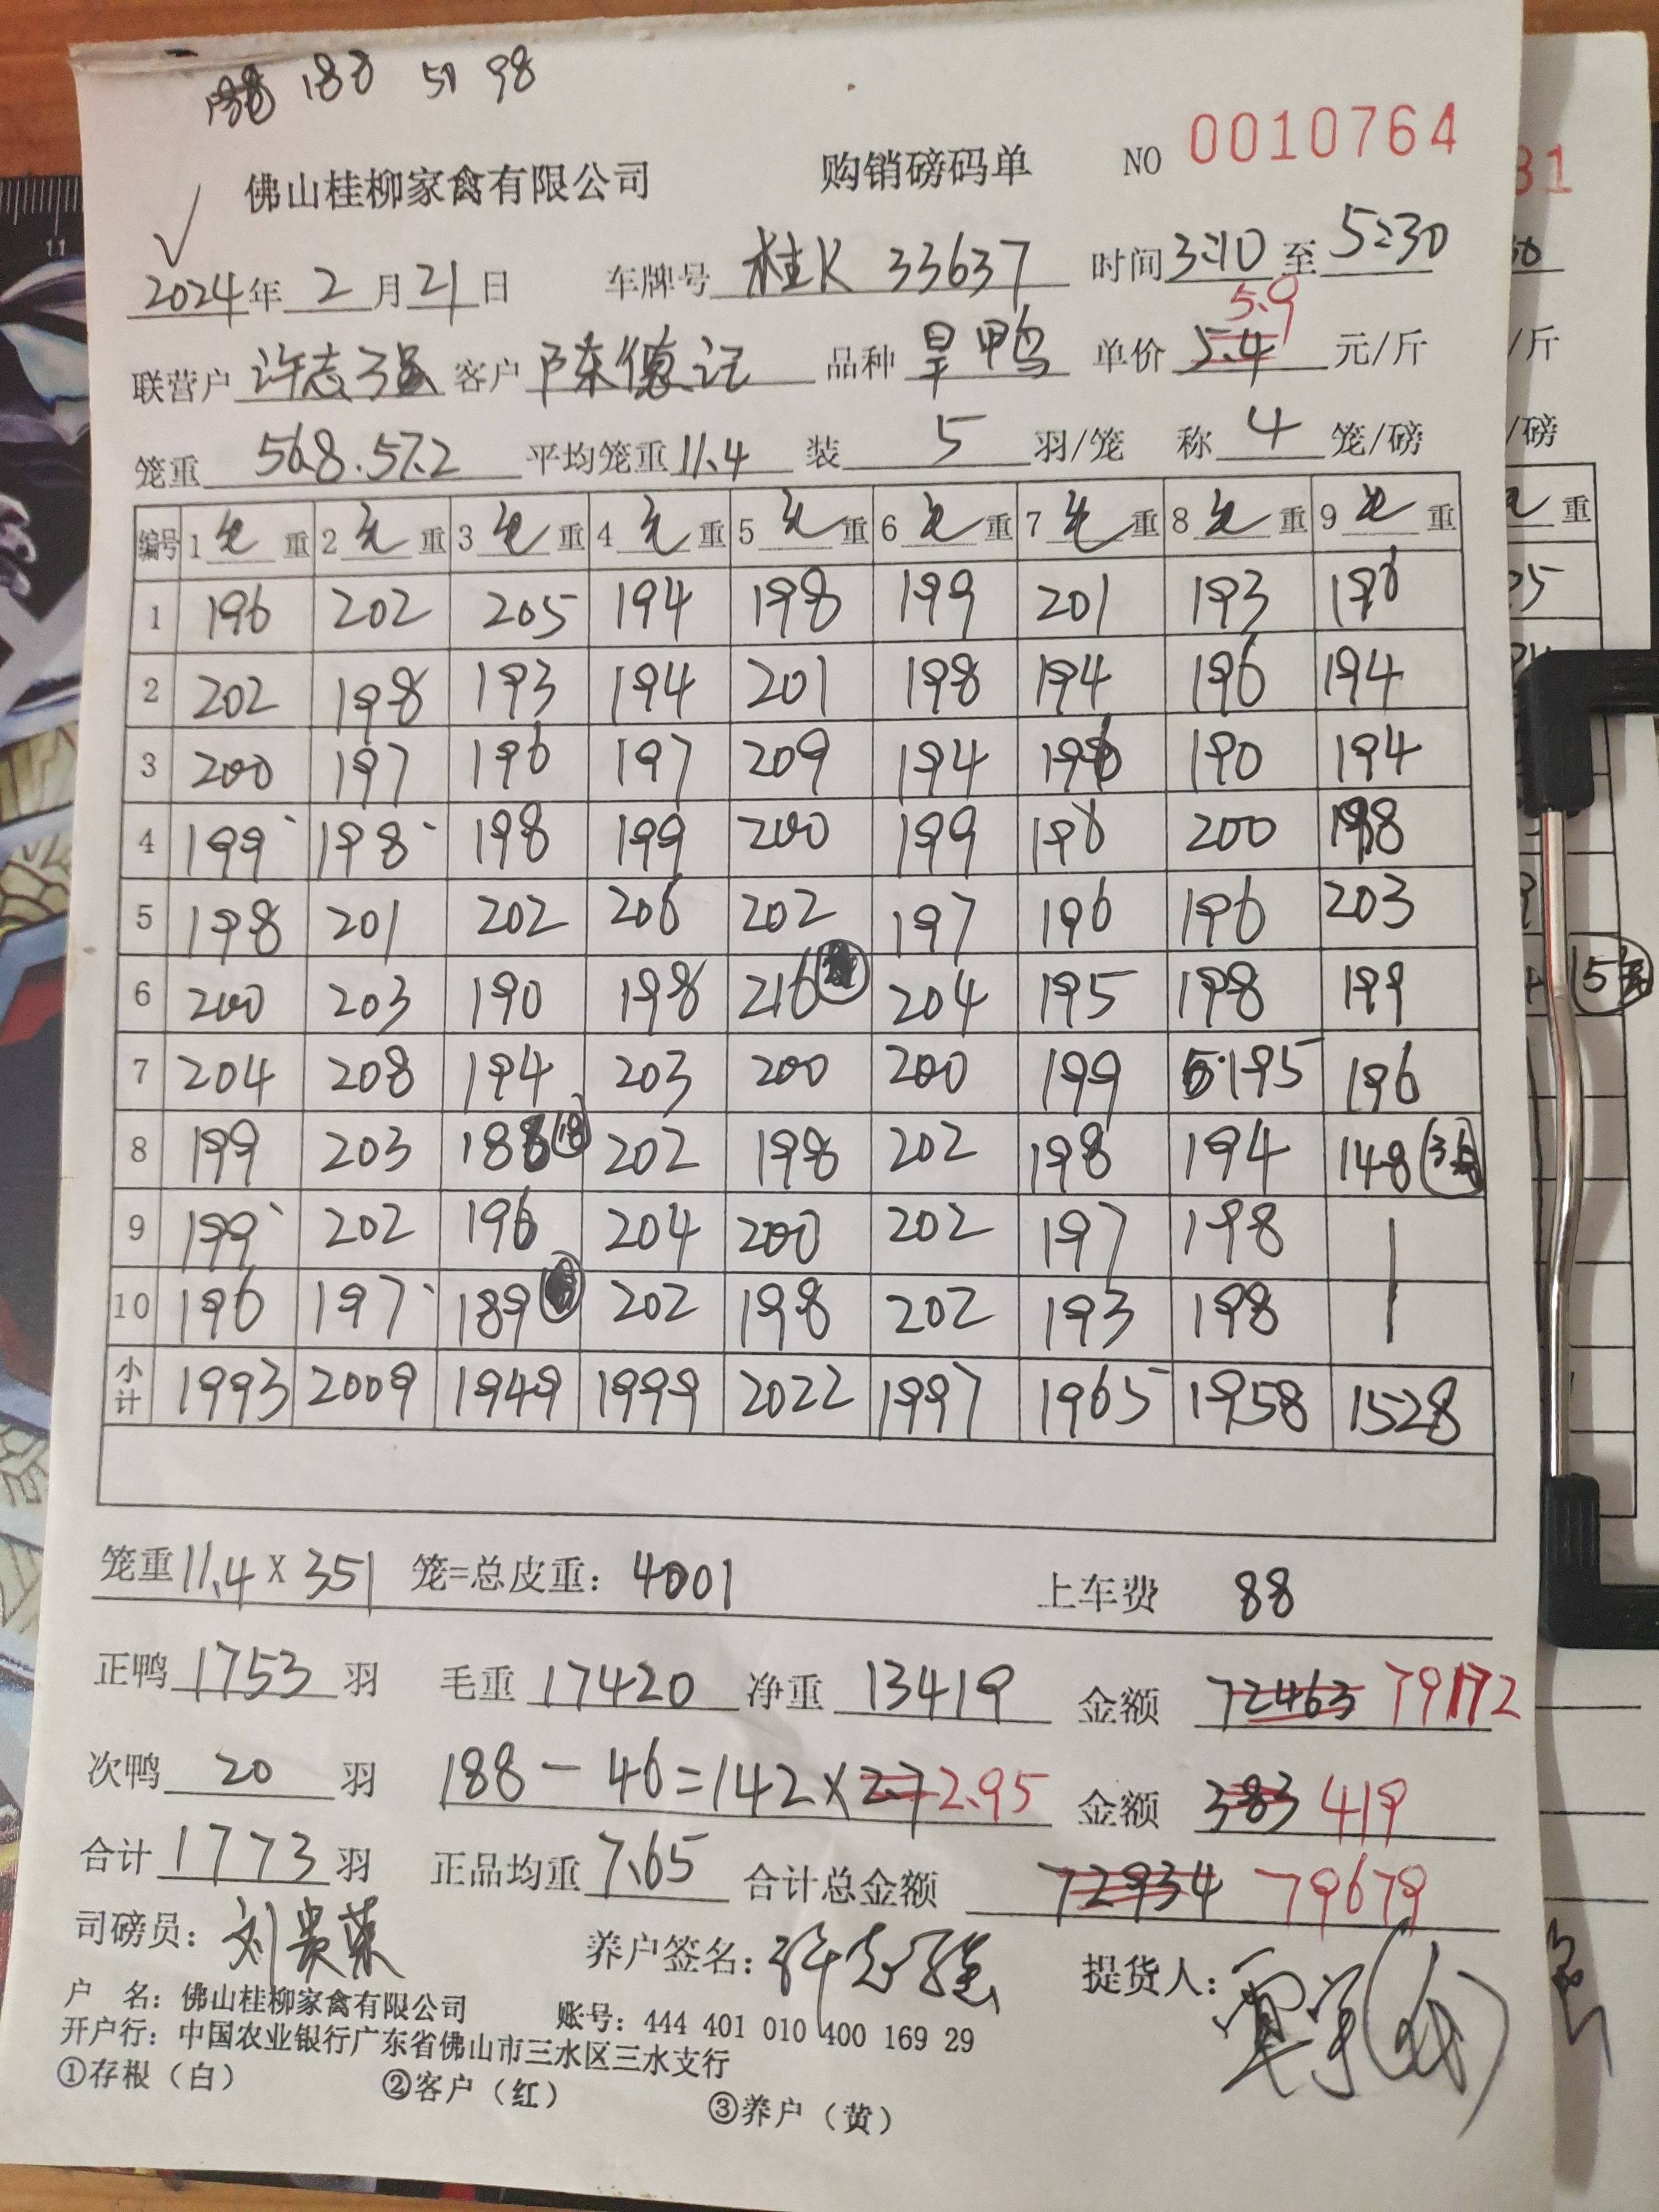 188 51 98
佛山桂柳家禽有限公司 购销磅码单 NO 0010764
2024年 2 月 21 日 车牌号 桂K 33637 时间 3:10 至 5:30
5.9
联营户 许志强 客户 陈德记 品种 旱鸭 单价 5.4 元/斤
笼重 56.8.57.2 平均笼重 11.4 装 5 羽/笼 称 4 笼/磅
编号 1 毛 重 2 毛 重 3 毛 重 4 毛 重 5 毛 重 6 毛 重 7 毛 重 8 毛 重 9 毛 重
1 196 202 205 194 198 199 201 193 196
2 202 198 193 194 201 198 194 196 194
3 200 197 196 197 209 194 196 190 194
4 199 198 198 199 200 199 196 200 198
5 198 201 202 206 202 197 196 196 203
6 200 203 190 198 216 204 195 198 199
7 204 208 194 203 200 200 199 195 196
8 199 203 188 202 198 202 198 194 148
9 199 202 196 204 200 202 197 198
10 196 197 189 202 198 202 193 198
小计 1993 2009 1949 1999 2022 1997 1965 1958 1528
笼重 11.4 X 351 笼=总皮重： 4001 上车费 88
正鸭 1753 羽 毛重 17420 净重 13419 金额 72463 79172
次鸭 20 羽 188 - 46 = 142 × 2.7 2.95 金额 383 419
合计 1773 羽 正品均重 7.65 合计总金额 72934 79679
司磅员： 刘贵荣 养户签名： 许志强 提货人：
户 名： 佛山桂柳家禽有限公司 账号：444 401 010 400 169 29
开户行： 中国农业银行广东省佛山市三水区三水支行
①存根（白） ②客户（红） ③养户（黄）